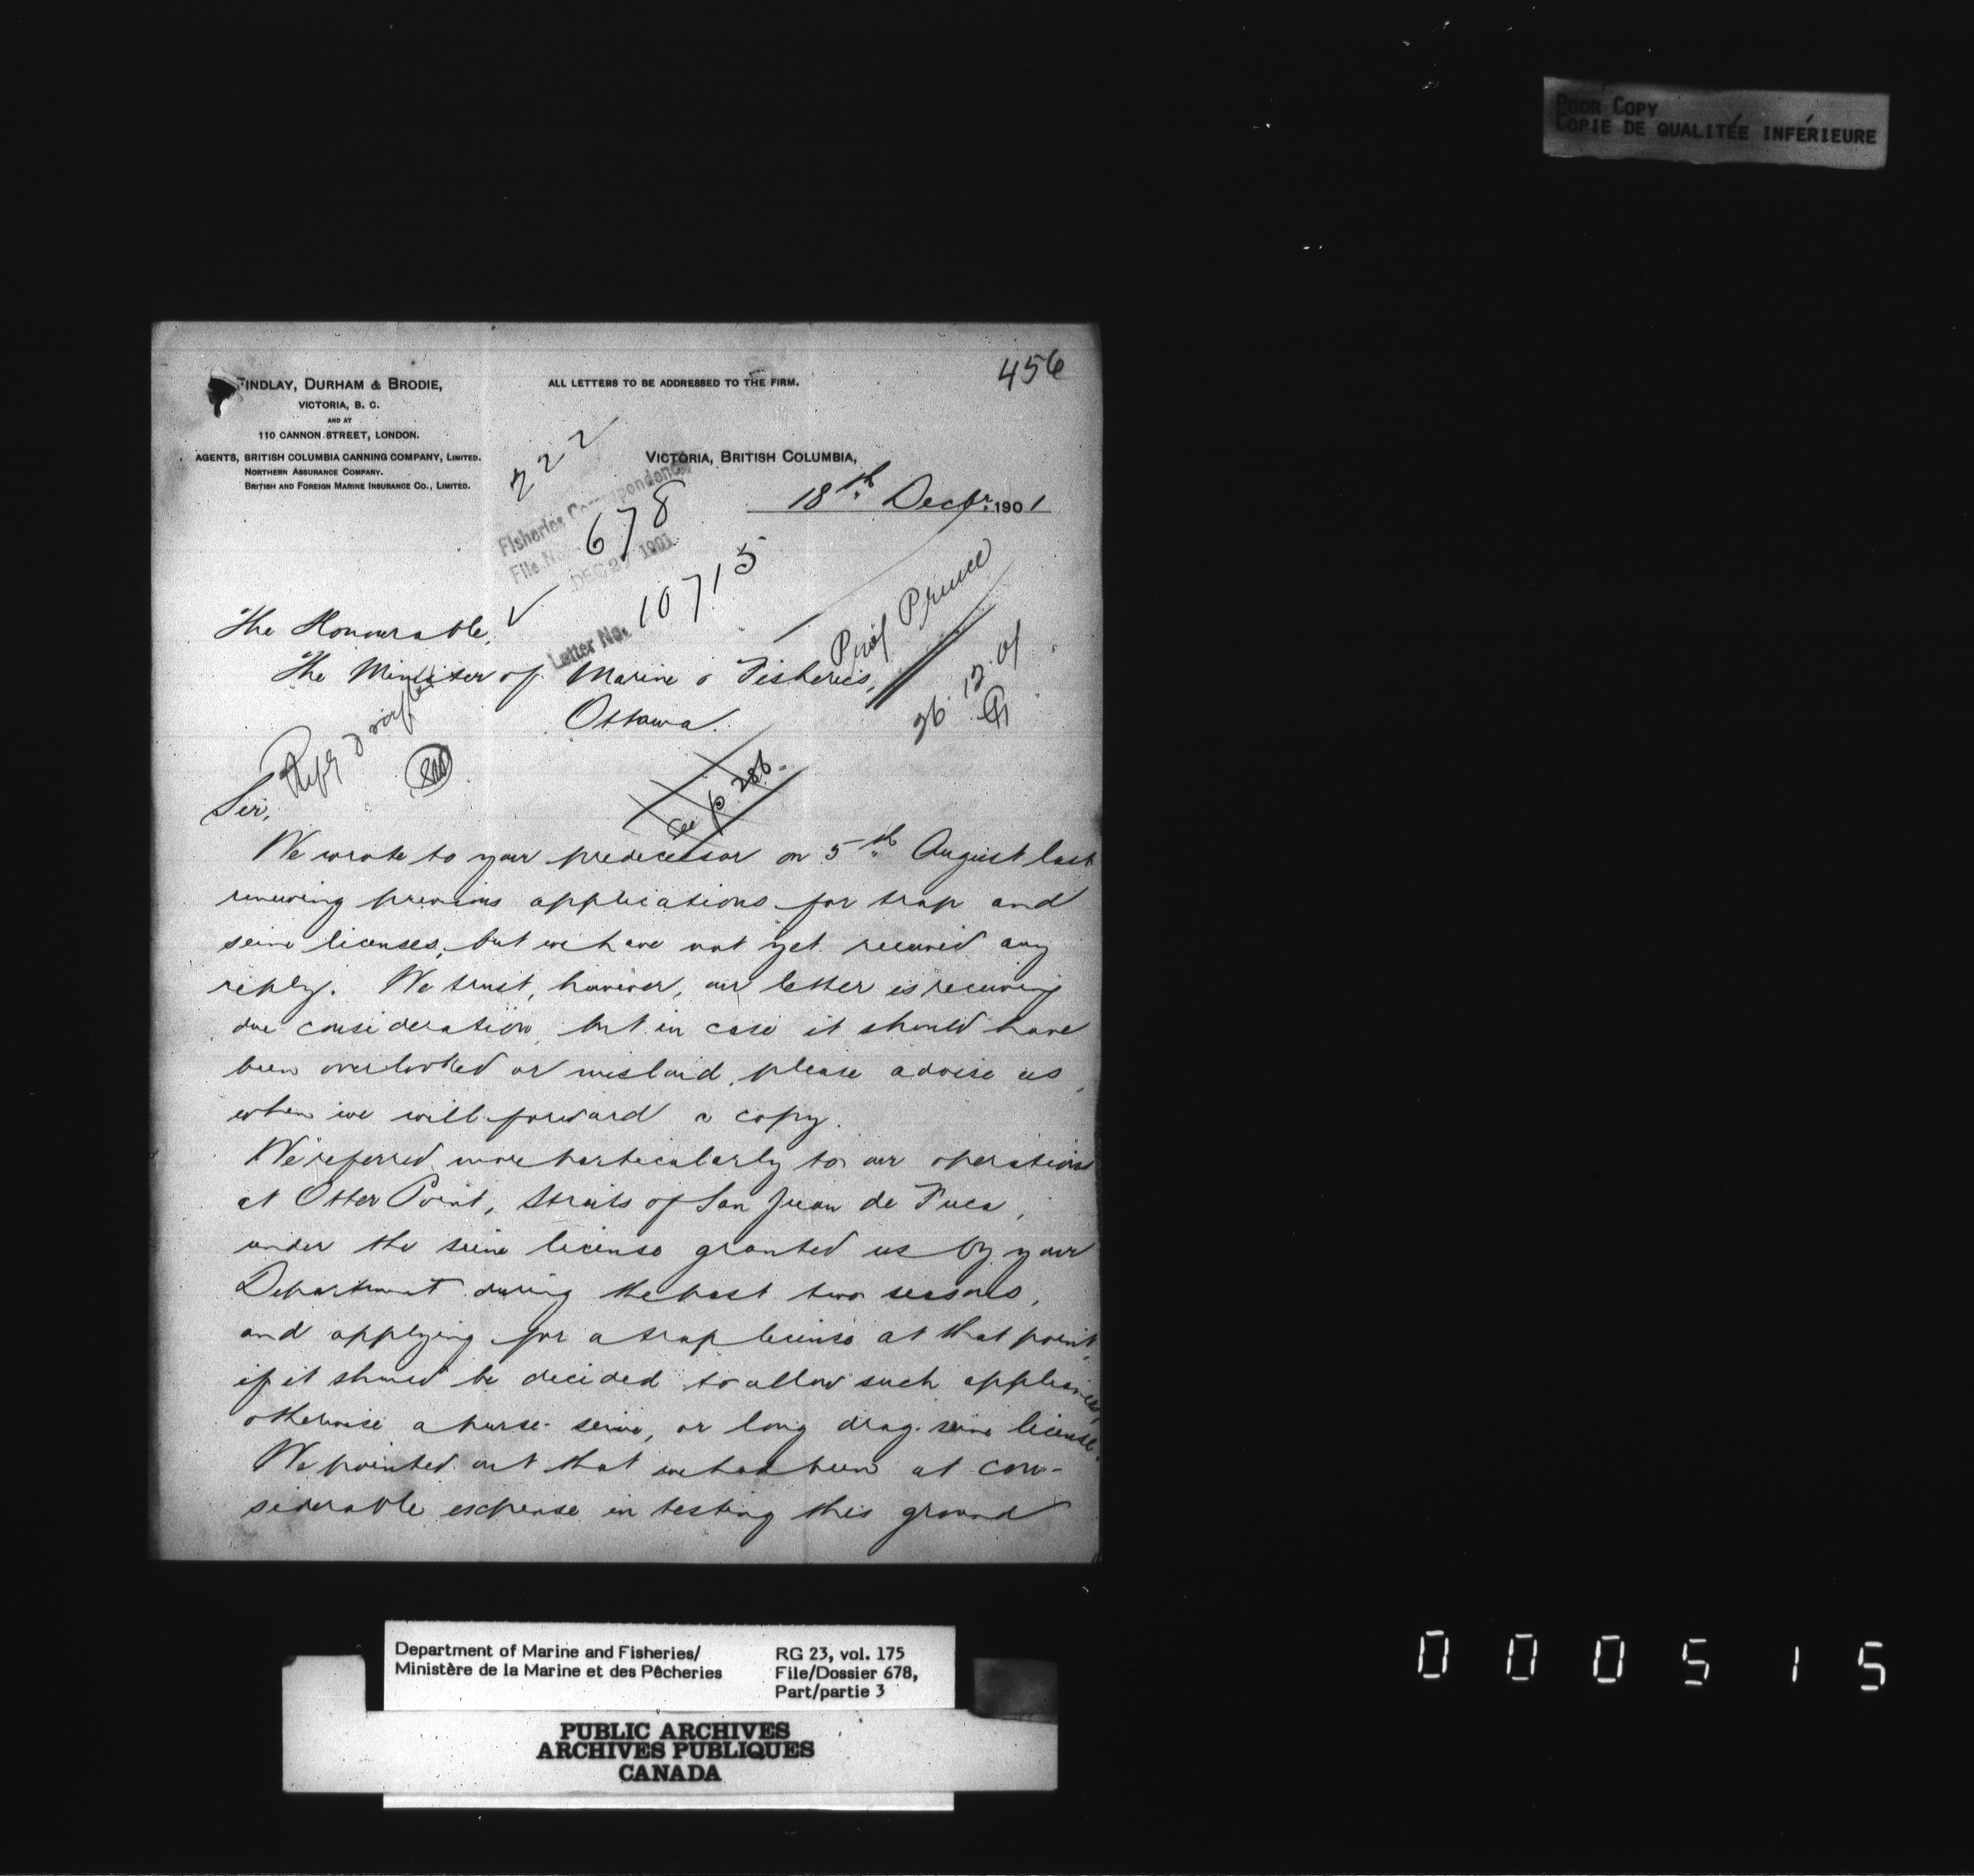 POOR COPY
COPIE DE QUALITÉE INFÉRIEURE
456
FINDLAY, DURHAM & BRODIE,
VICTORIA, B. C.
AND AT
110 CANNON STREET, LONDON.
AGENTS, BRITISH COLUMBIA CANNING COMPANY, LIMITED.
NORTHERN ASSURANCE COMPANY.
BRITISH AND FOREIGN MARINE INSURANCE CO., LIMITED.
ALL LETTERS TO BE ADDRESSED TO THE FIRM.
VICTORIA, BRITISH COLUMBIA,
18th Decbr. 1901
222
Fisheries Correspondence
File No. 678
DEC 1901
Letter No. 10715
Prof Prince
26.12.01
The Honourable,
The Minister of Marine & Fisheries,
Ottawa.
See p 286.
Sir,
We wrote to your predecessor on 5th August last
renewing previous applications for trap and
seine licenses, but we have not yet received any
reply. We trust, however, our letter is receiving
due consideration, but in case it should have
been overlooked or mislaid, please advise us,
when we will forward a copy.
We referred more particularly to our operations
at Otter Point, Straits of San Juan de Fuca,
under the seine license granted us by your
Department during the past two seasons,
and applying for a trap license at that point,
if it should be decided to allow such appliances,
otherwise a purse-seine, or long drag-seine license.
We pointed out that we had been at con-
siderable expense in testing this ground
Department of Marine and Fisheries/
Ministère de la Marine et des Pêcheries
RG 23, vol. 175
File/Dossier 678,
Part/partie 3
PUBLIC ARCHIVES
ARCHIVES PUBLIQUES
CANADA
000515